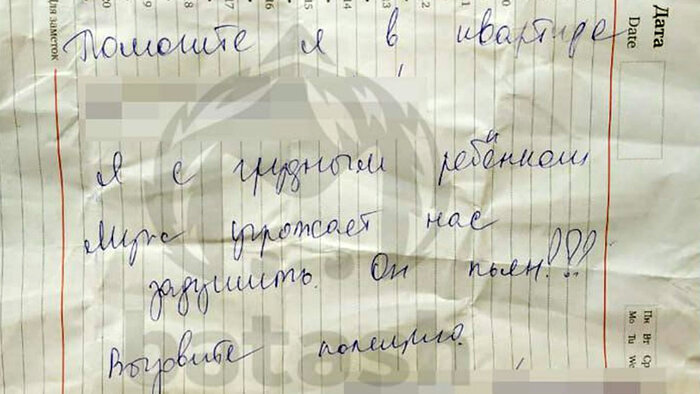 Для заметок
20 19 18 17 16 15 14 13 12
Дата
Date
Помогите я в квартире
Я с грудным ребёнком
Муж угрожает нас
задушить. Он пьян!!!
Вызовите полицию.
Пн Вт Ср
Mo Tu We
batash